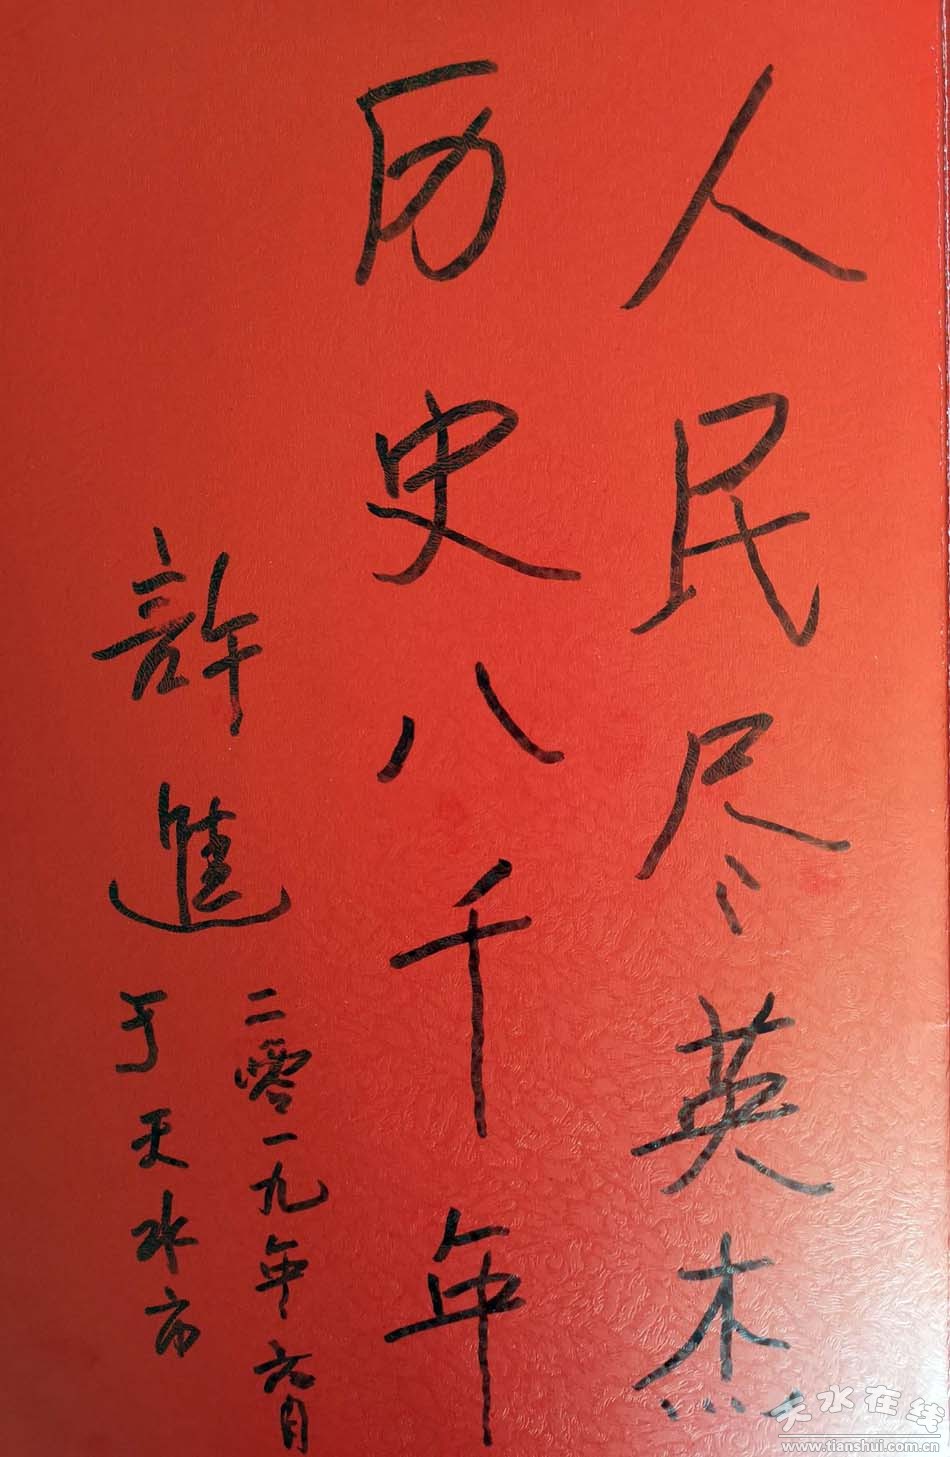 人民尽英杰
历史八千年
二零一九年六月
許進于天水市
天水在线
www.tianshui.com.cn